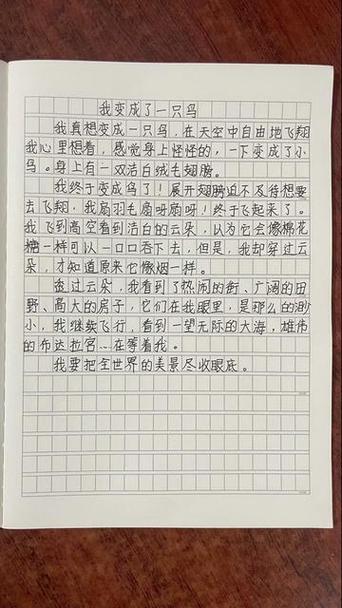 我变成了一只鸟
我真想变成一只鸟，在天空中自由地飞翔
我心里想着，感觉身上怪怪的，一下变成了小
鸟。身上有一双洁白绒毛翅膀。
我终于变成鸟了！展开翅膀迫不及待想要
去飞翔，我扇羽毛扇呀扇呀！终于飞起来了。
我飞到高空看到洁白的云朵，以为它会像棉花
糖一样可以一口口吞下去，但是，我却穿过云
朵，才知道原来它像烟一样。
透过云朵，我看到了热闹的街、广阔的田
野、高大的房子，它们在我眼里，是那么的渺
小，我继续飞行，看到一望无际的大海，雄伟
的布达拉宫…在等着我。
我要把全世界的美景尽收眼底。